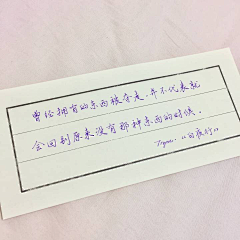 曾经拥有的东西被夺走,并不代表就
会回到原来没有那种东西的时候。